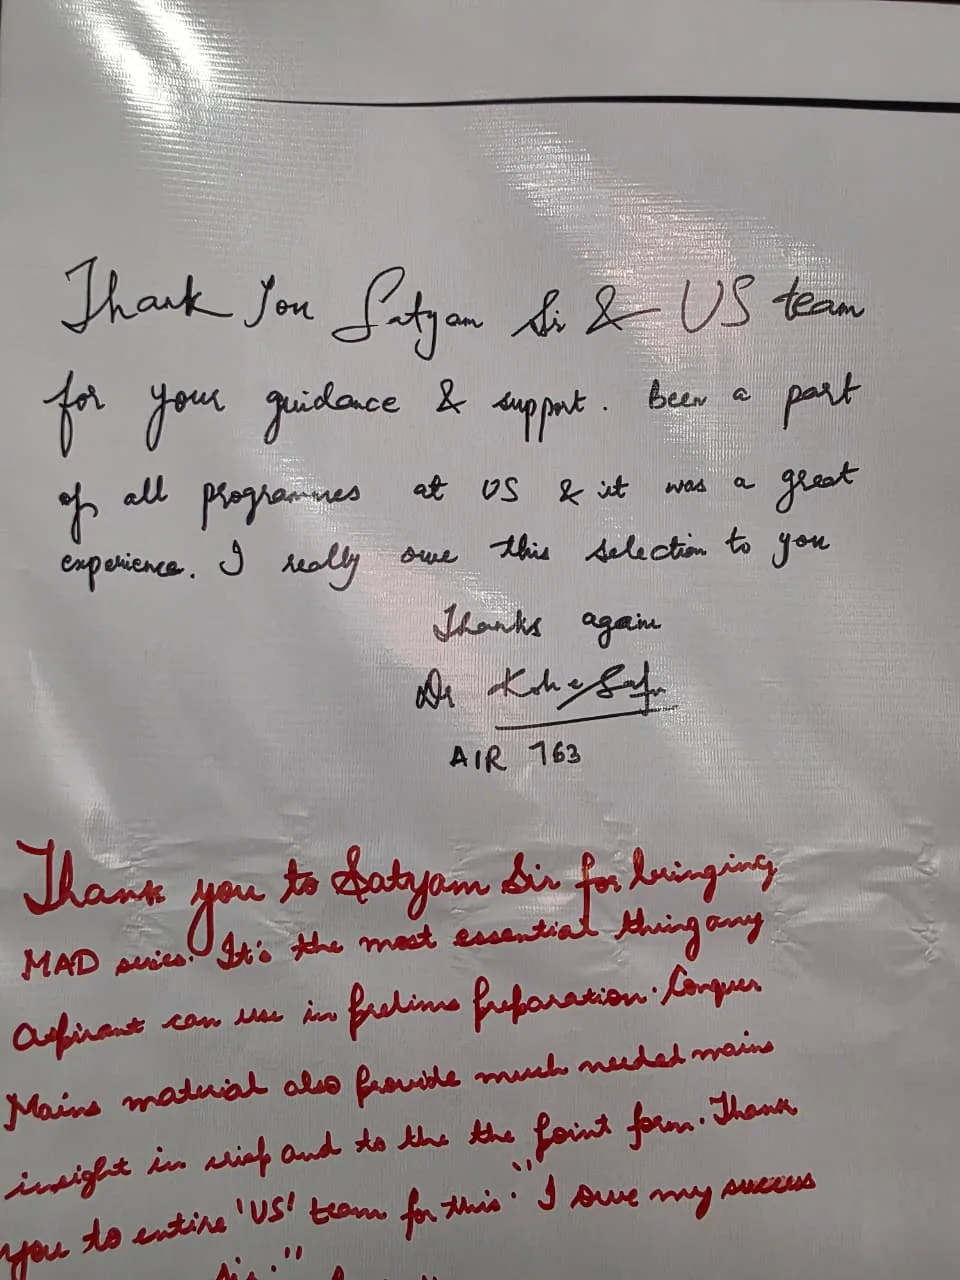 Thank You Satyam Sir & US team
for your guidance & support. Been a part
of all programmes at US & it was a great
experience. I really owe this selection to you
Thanks again
Dr
AIR 763
Thank you to Satyam Sir for bringing
MAD series. It's the most essential thing any
Aspirant can use in prelims preparation. Conquer
Mains material also provide much needed mains
insight in crisp and to the the point form. Thank
you to entire 'US' team for this. "I owe my success
Sir."